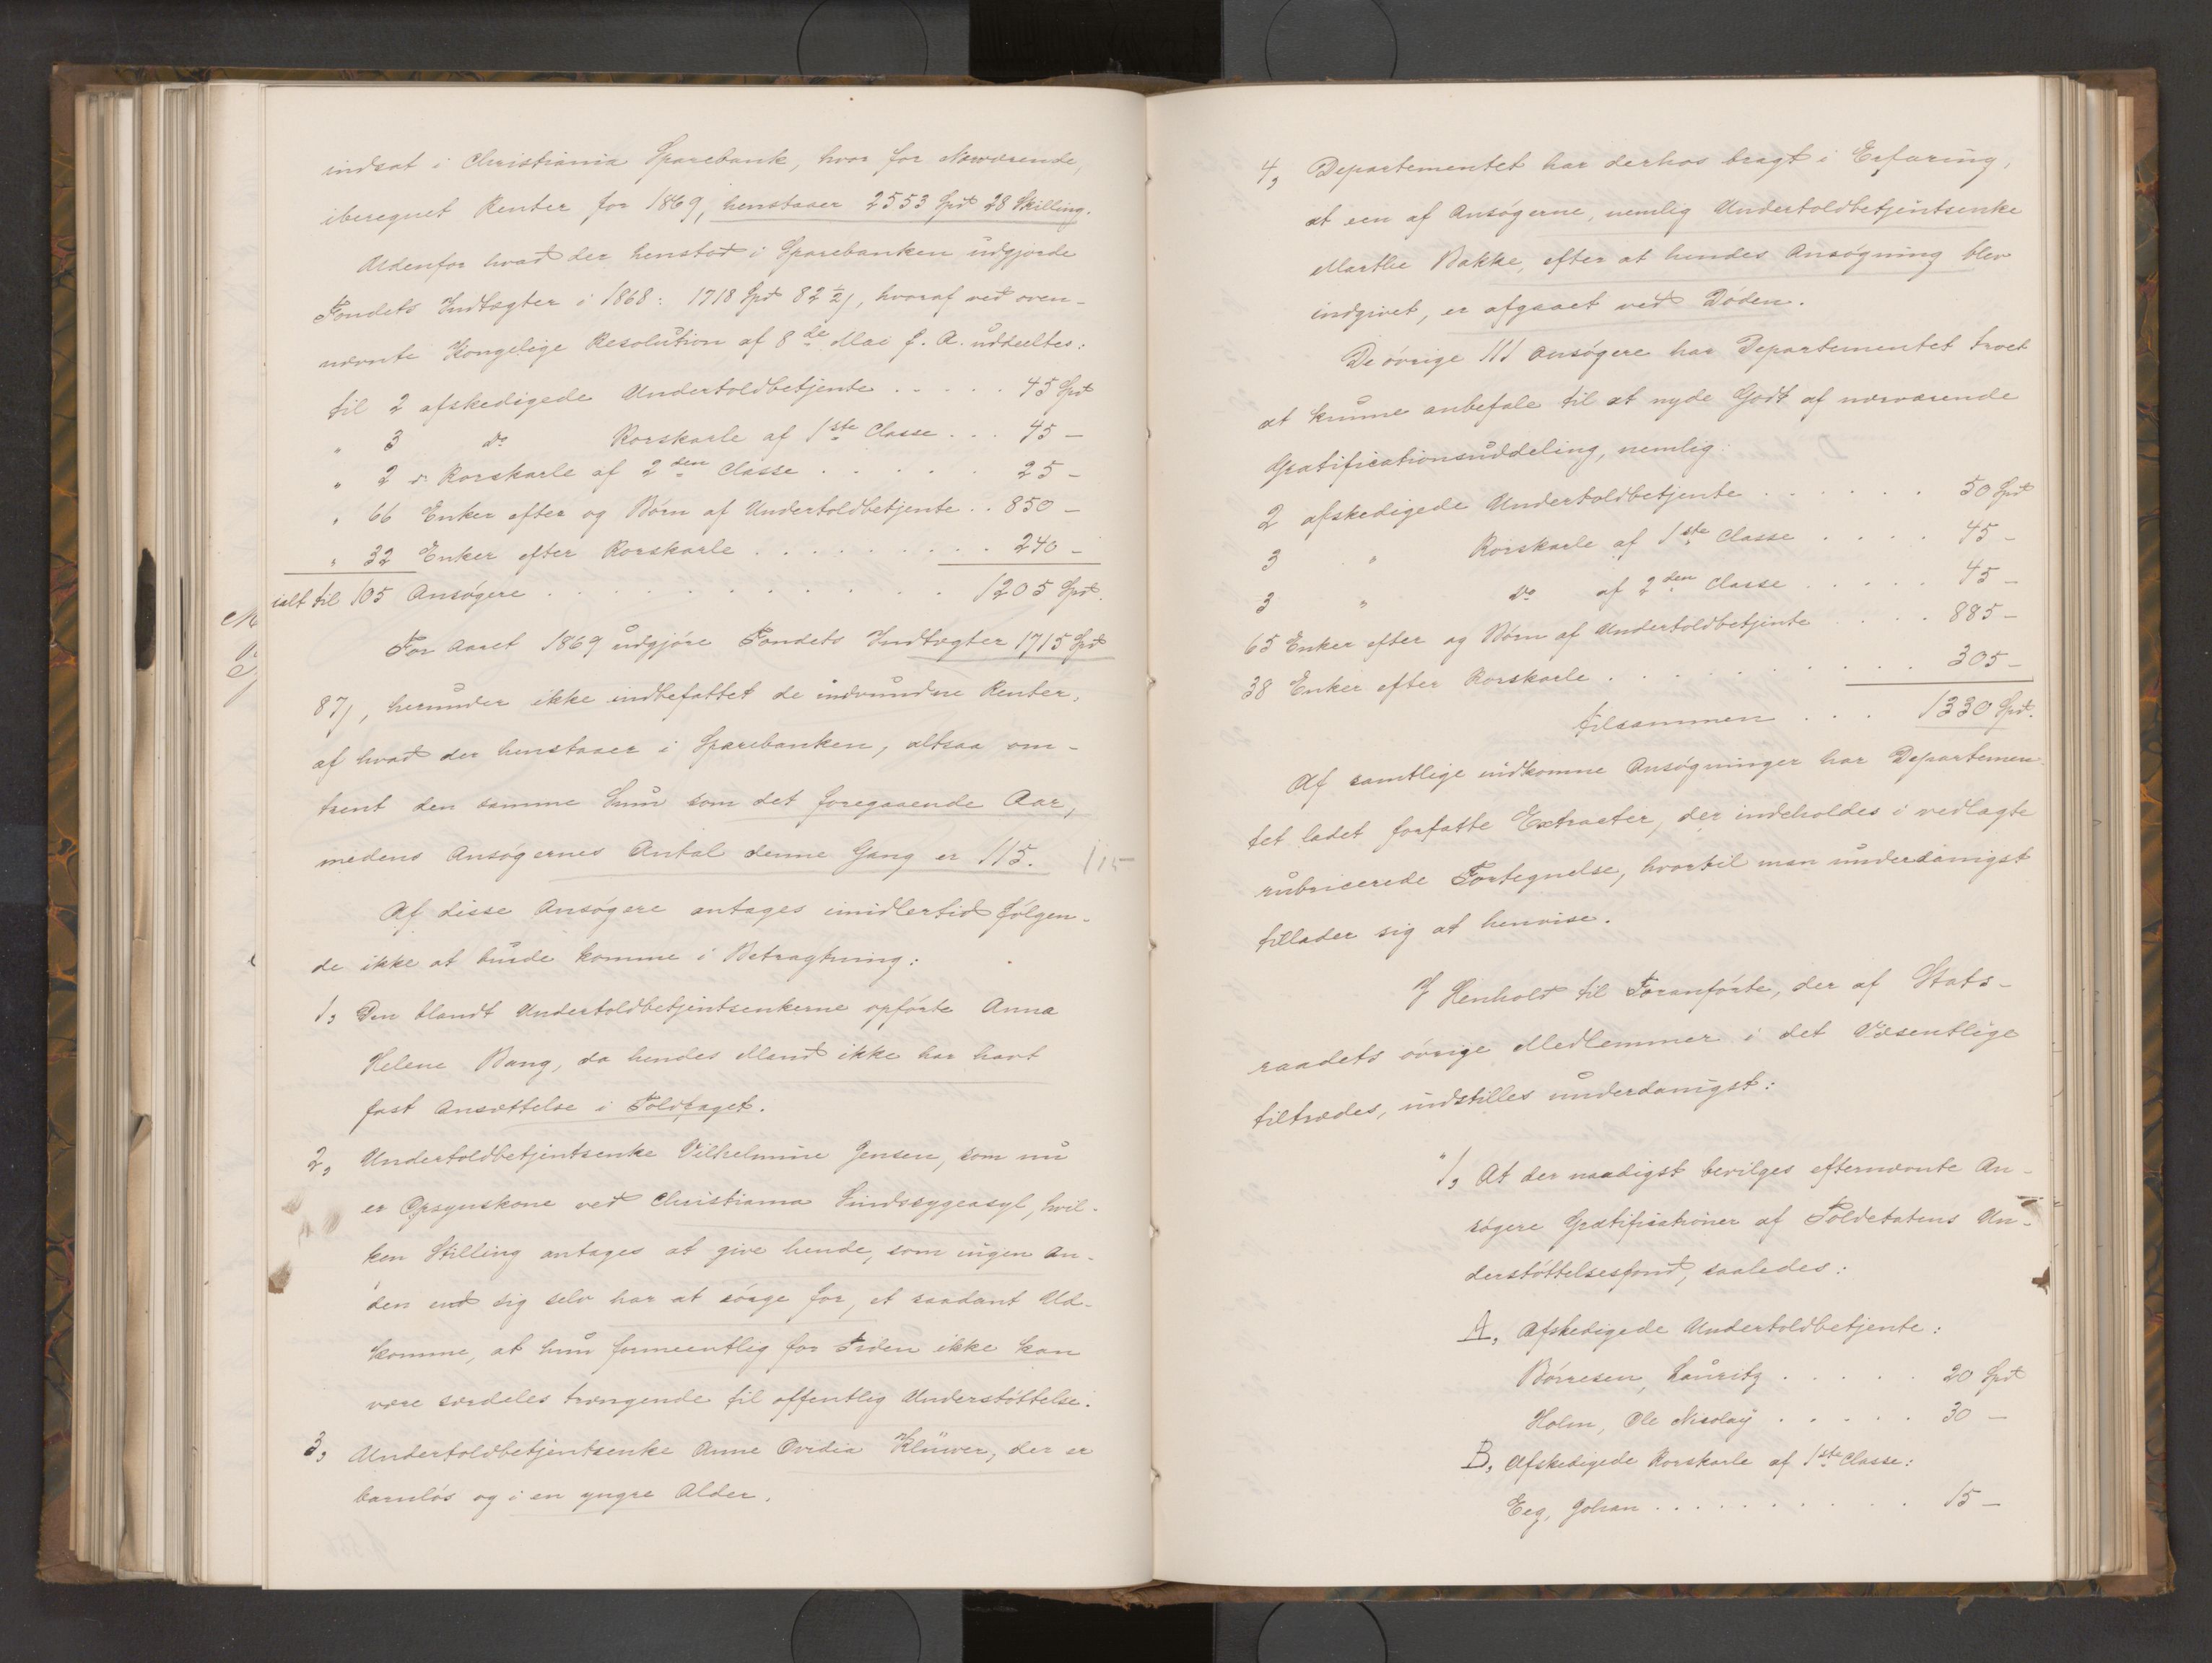 indsat i Christiania Sparebank, hvor for Nærværende,
iberegnet Renter for 1869, henstaaer 2553 Spd 28 Skilling.
Udenfor hvad der henstod i Sparebanken udgjorde
Fondets Indtægter i 1868: 1718 Spd 82 ½ ʃ, hvoraf ved oven-
nævnte Kongelige Resolution af 8de Mai f. A. uddeeltes:
til 2 afskedigede Undertoldbetjente . . . . . 45 Spd
" 3 do Rorskarle af 1ste Classe . . . 45 —
" 2 do Rorskarle af 2den Classe . . . . . 25 —
" 66 Enker efter og Børn af Undertoldbetjente . . 850 —
" 32 Enker efter Rorskarle . . . . . . . . . 240 —
ialt til 105 Ansøgere . . . . . . . . . . . 1205 Spd.
For Aaret 1869 udgjøre Fondets Indtægter 1715 Spd
87 ʃ, herunder ikke indbefattet de indvundne Renter,
af hvad der henstaaer i Sparebanken, altsaa om-
trent den samme Sum som det foregaaende Aar,
medens Ansøgernes Antal denne Gang er 115. 115
Af disse Ansøgere antages imidlertid følgen-
de ikke at burde komme i Betragtning:
1, Den blandt Undertoldbetjentsenkerne opførte Anna
Helene Bang, da hendes Mand ikke har havt
fast Ansættelse i Toldfaget.
2, Undertoldbetjentsenke Vilhelmine Jensen, som nu
er Opsynskone ved Christiania Sindssygeasyl, hvil-
ken Stilling antages at give hende, som ingen An-
den end sig selv har at sørge for, et saadant Ud-
komme, at hun formeentlig for Tiden ikke kan
være særdeles trængende til offentlig Understøttelse.
3, Undertoldbetjentsenke Anne Ovidia Klüwer, der er
barnløs og i en yngre Alder.
4, Departementet har derhos bragt i Erfaring,
at een af Ansøgerne, nemlig Undertoldbetjentsenke
Marthe Bakke, efter at hendes Ansøgning blev
indgivet, er afgaaet ved Døden.
De øvrige 111 Ansøgere har Departementet troet
at kunne anbefale til at nyde Godt af nærværende
Gratificationsuddeling, nemlig:
2 afskedigede Undertoldbetjente . . . . . . 50 Spd
3 " Rorskarle af 1ste Classe . . . . 45 —
3 " do af 2den Classe . . . . . 45 —
65 Enker efter og Børn af Undertoldbetjente . . . . 885 —
38 Enker efter Rorskarle . . . . . . . . . 305 —
tilsammen . . . 1330 Spd.
Af samtlige indkomne Ansøgninger har Departemen-
tet ladet forfatte Extracter, der indeholdes i vedlagte
rubricerede Fortegnelse, hvortil man underdanigst
tillader sig at henvise.
I Henhold til Foranførte, der af Stats-
raadets øvrige Medlemmer i det Væsentlige
tiltrædes, indstilles underdanigst:
"1, At der naadigst bevilges efternævnte An-
søgere Gratificationer af Toldetatens Un-
derstøttelsesfond, saaledes:
A, Afskedigede Undertoldbetjente:
Børresen, Lauritz . . . . . 20 Spd
Holm, Ole Nicolay . . . . . 30 —
B, Afskedigede Rorskarle af 1ste Classe:
Eeg, Johan . . . . . . . . . 15 —